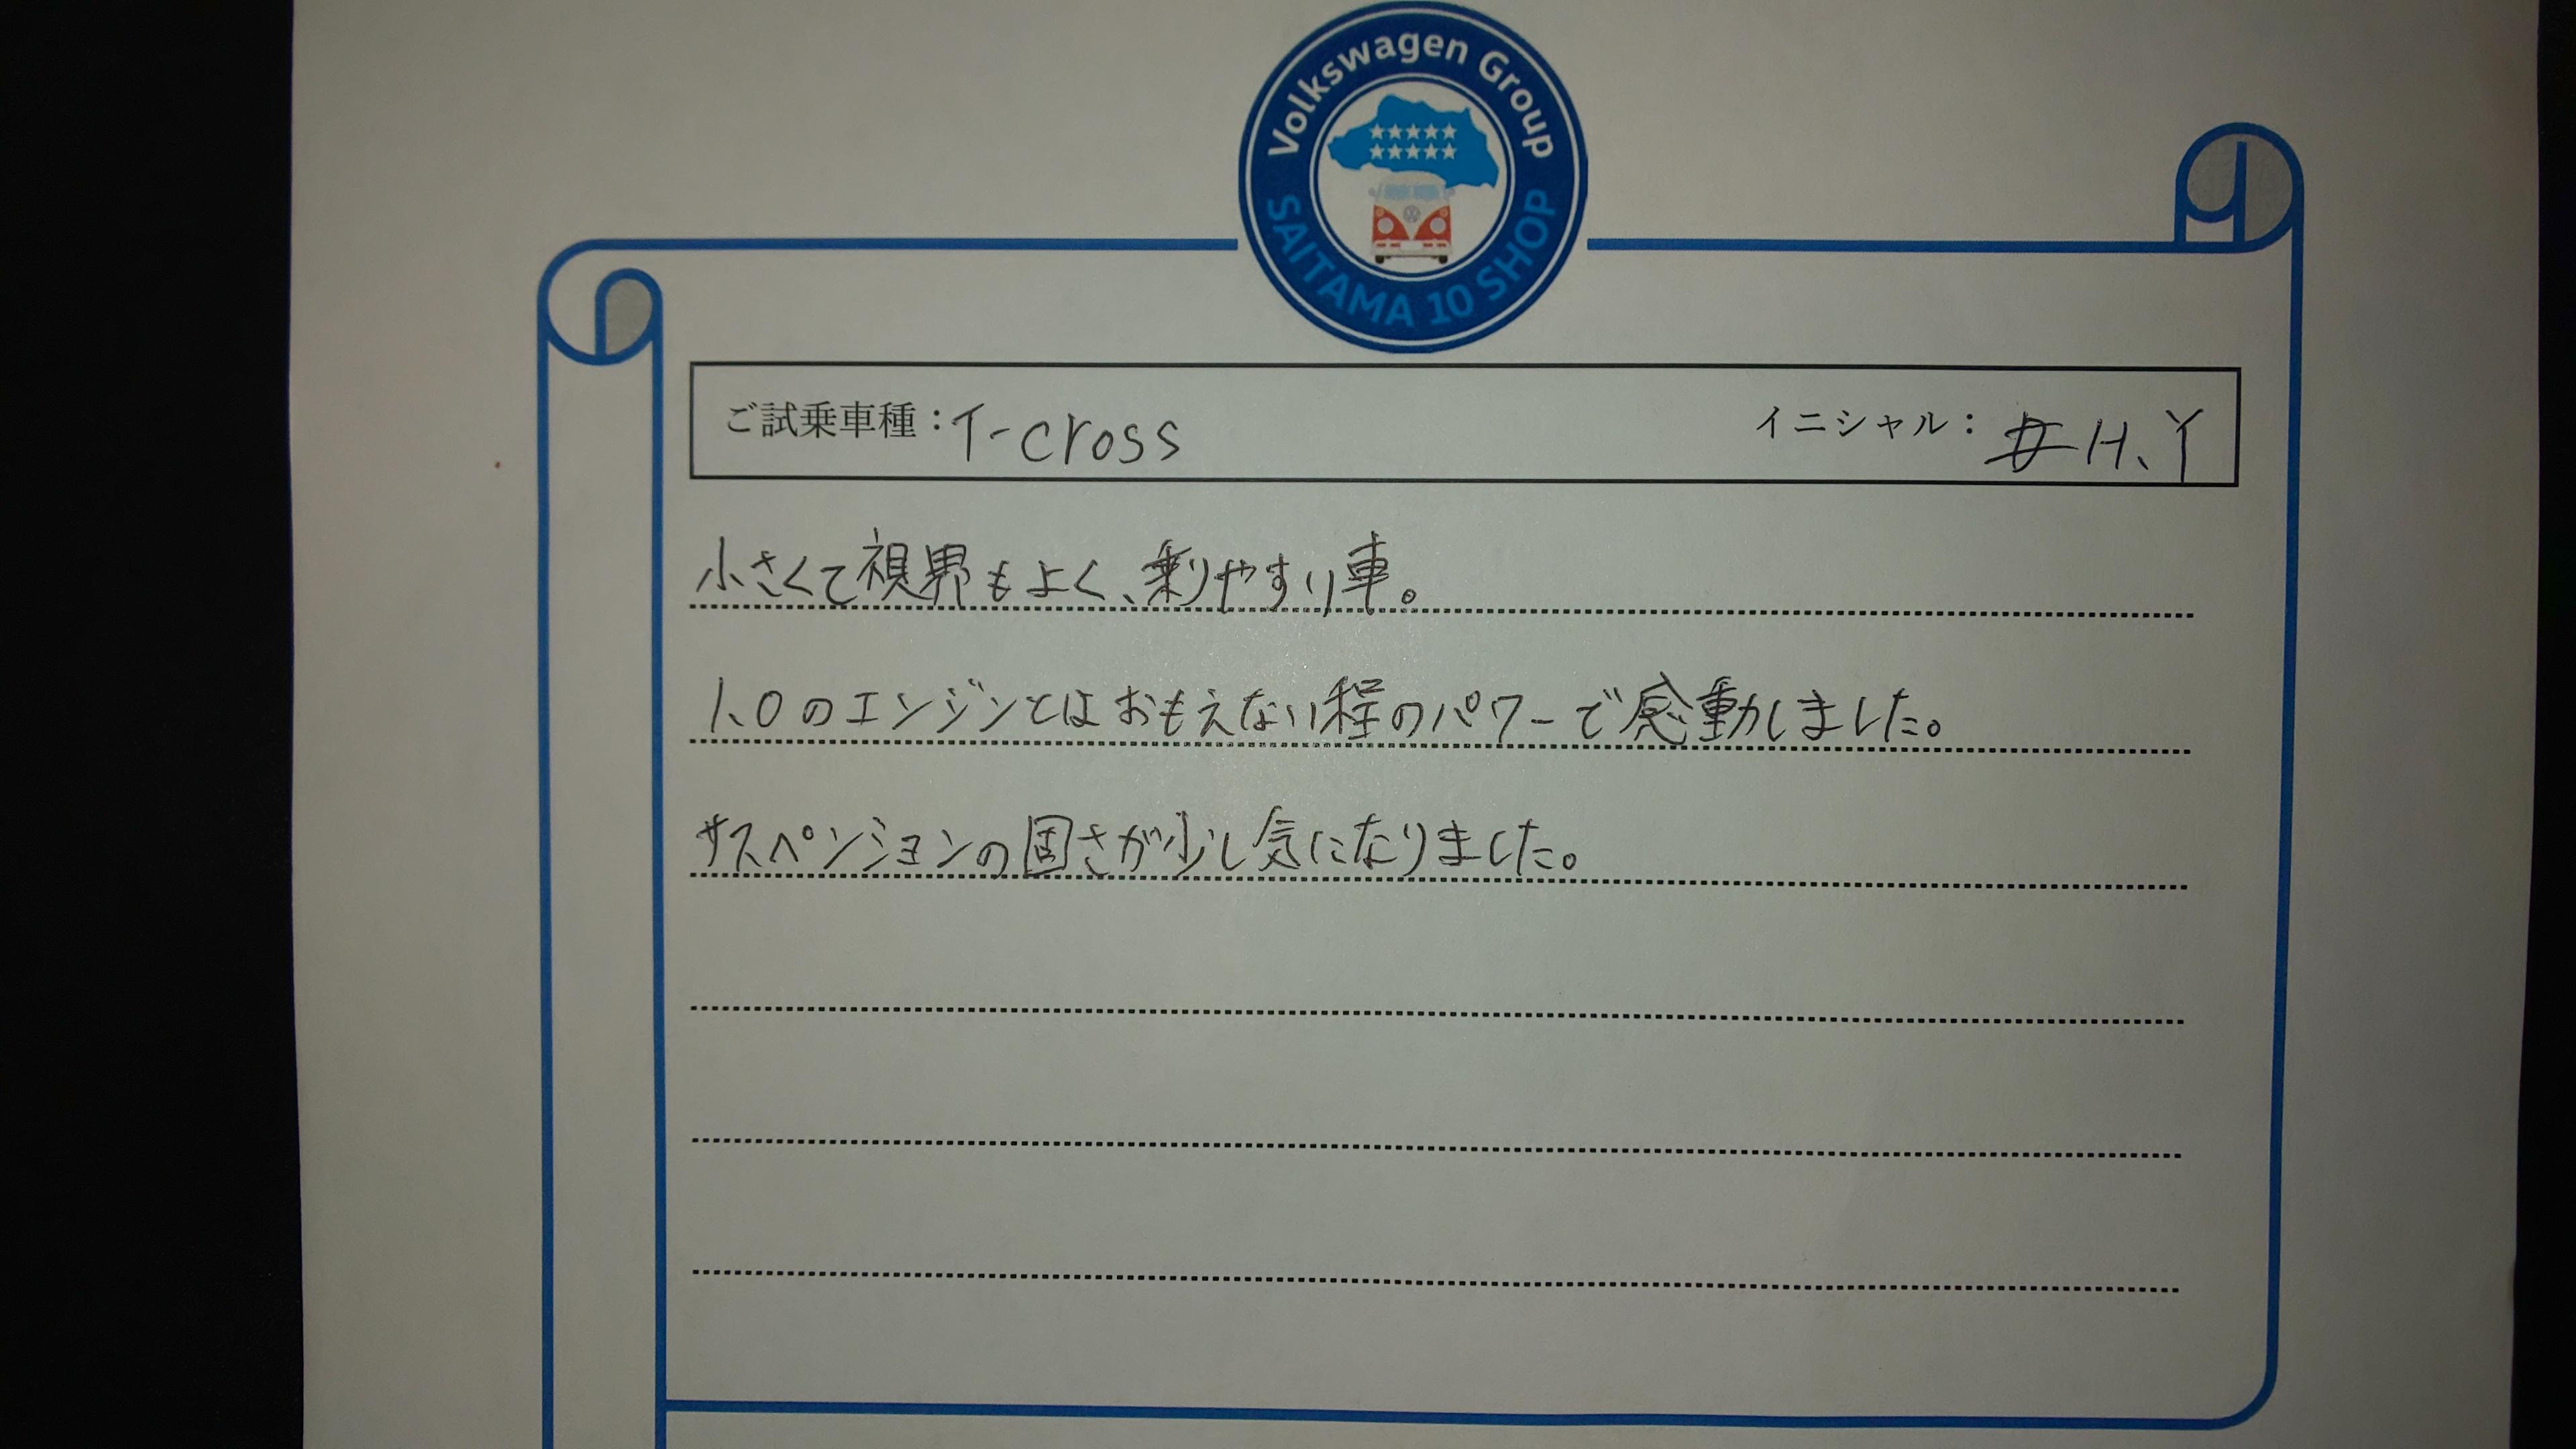 Volkswagen Group
SAITAMA 10 SHOP
ご試乗車種：T-cross イニシャル： H、Y
小さくて視界もよく、乗りやすい車。
1.0のエンジンとはおもえない程のパワーで感動しました。
サスペンションの固さが少し気になりました。